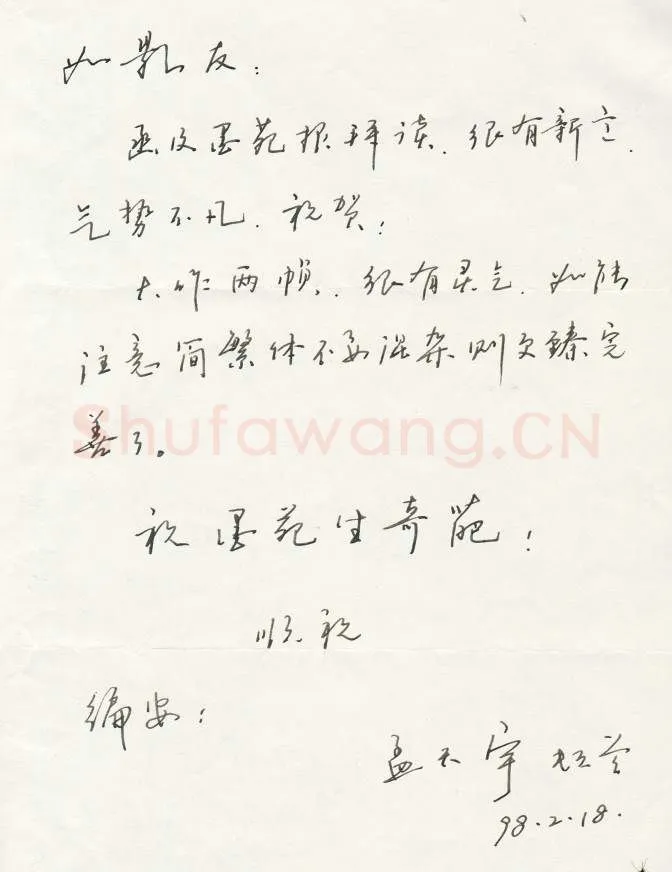 如影友：
函及墨苑报拜读.很有新意.
气势不凡.祝贺！
大作两帧.很有灵气.如能
注意简繁体不要混杂则更臻完
善了。
Shufawang.CN
祝墨苑生奇葩！
顺祝
编安！
孟天宇
98.2.18.